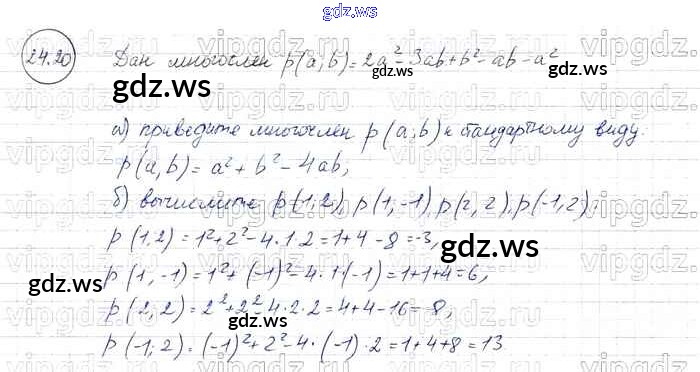 gdz.ws
24.20 Дан многочлен p(a;b)=2a²-3ab+b²-ab-a²
а) приведите многочлен p(a;b) к стандартному виду.
p(a,b)=a²+b²-4ab,
б) вычислите p(1;2), p(1;-1), p(2,2), p(-1,2).
p(1,2)=1²+2²-4·1·2=1+4-8=-3,
p(1,-1)=1²+(-1)²-4·1·(-1)=1+1+4=6,
p(2,2)=2²+2²-4·2·2=4+4-16=-8,
p(-1;2)=(-1)²+2²-4·(-1)·2=1+4+8=13